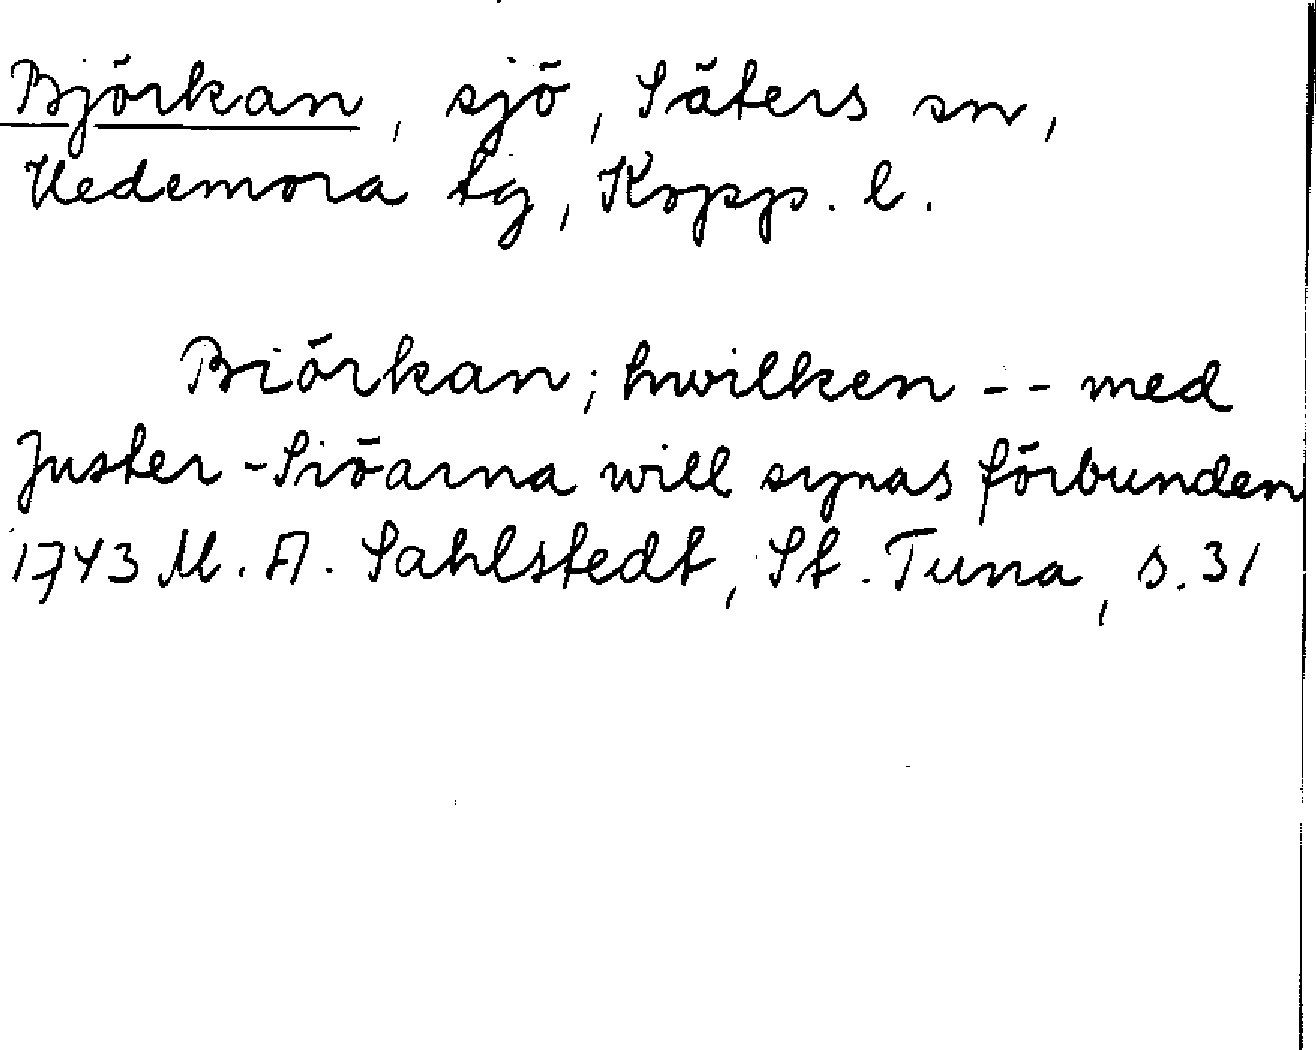 Björkan, sjö, Säters sn,
Hedemora tg, Kopp. l.
Biörkan; hwilken -- med
Juster-Siöarna will synas förbunden
1743 M. A. Sahlstedt, St. Tuna, s. 31